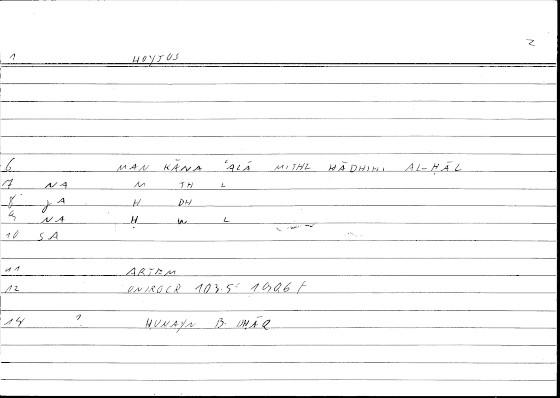 2
1 HOYTOS
6 MAN KĀNA ʿALĀ MITHL HĀDHIHI AL-ḤĀL
7 NA M TH L
8 JA H DH
9 NA Ḥ W L
10 SA
11 ARTEM
12 ONIROCR 103.5 1906 f
14 ? HUNAYN B.